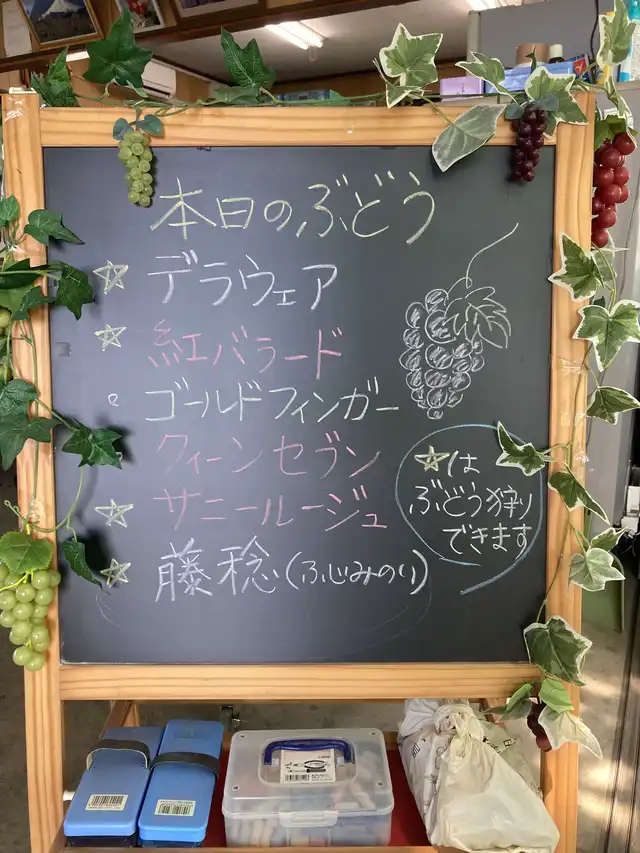 本日のぶどう
☆ デラウェア
☆ 紅バラード
ゴールドフィンガー
クィーンセブン
☆ サニールージュ
☆ 藤稔(ふじみのり)
☆は
ぶどう狩り
できます